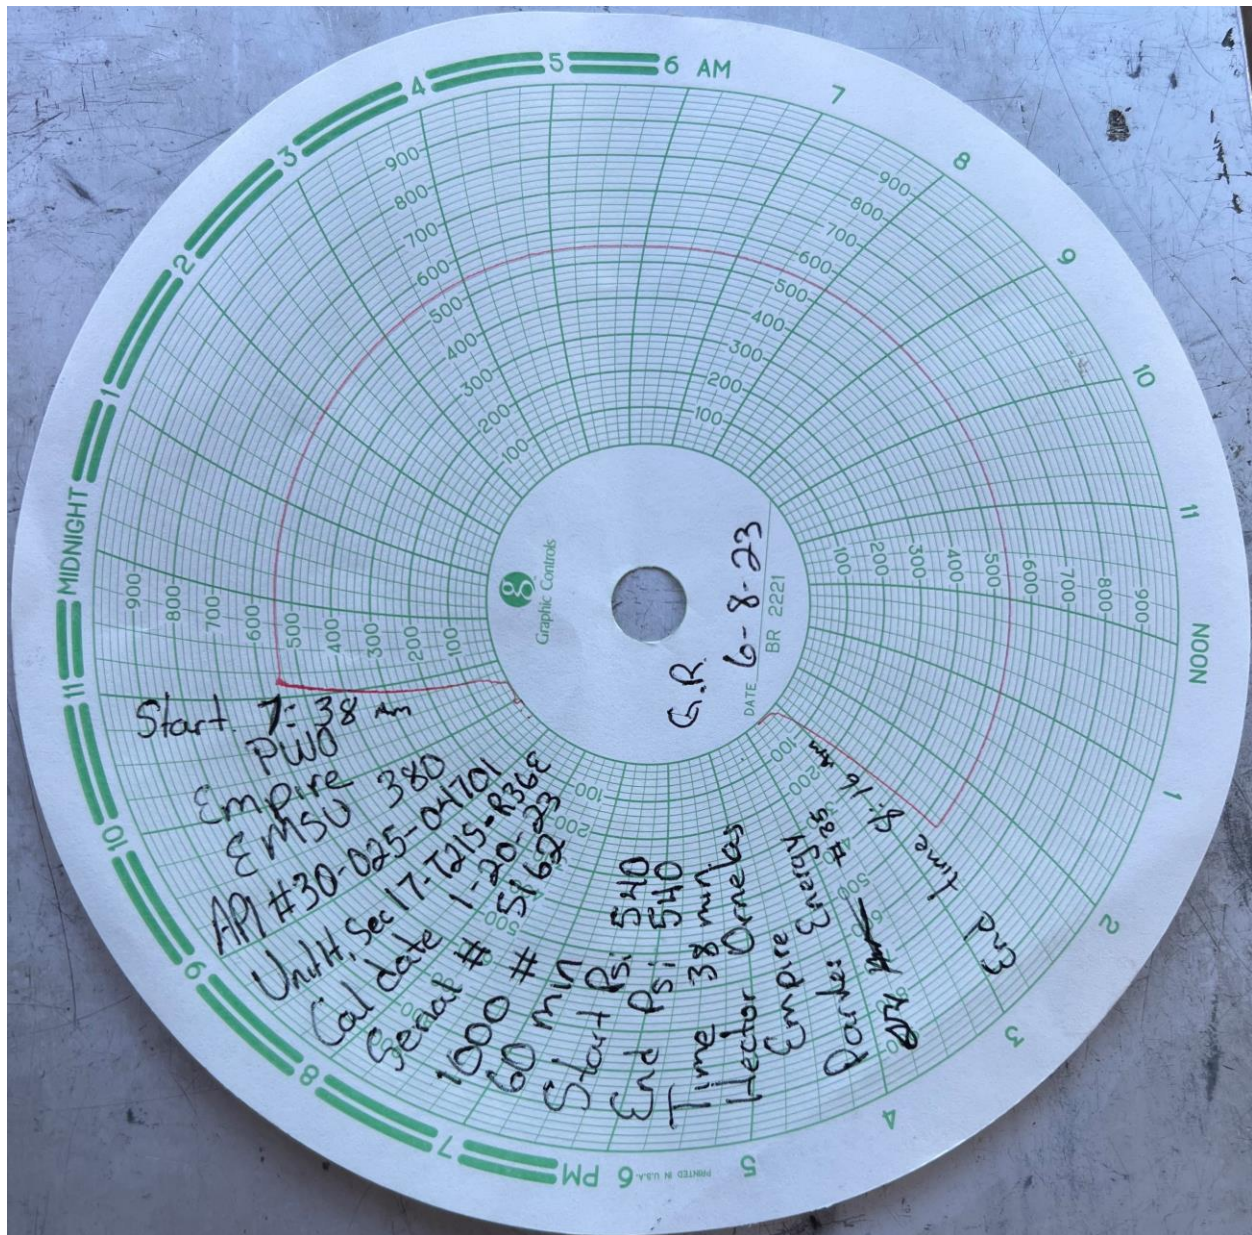 MIDNIGHT
1
2
3
4
5
6 AM
7
8
9
10
11
NOON
1
2
3
4
5
6 PM
7
8
9
10
11
PRINTED IN U.S.A.
900
800
700
600
500
400
300
200
100
900
800
700
600
500
400
300
200
100
100
200
300
400
500
600
700
800
900
900
800
700
600
500
400
300
200
100
g
Graphic Controls
G.R.
DATE 6-8-23
BR 2221
Start 7:38 Am
PWO
Empire
EMSU 380
API #30-025-04701
Unit H, Sec 17-T21S-R36E
Cal date 1-20-23
Serial # 5162
1000 #
60 min
Start Psi 540
End Psi 540
Time 38 min
Hector Ornelas
Empire
Parker Energy #25
End time 8:16 Am
100
200
500
100
200